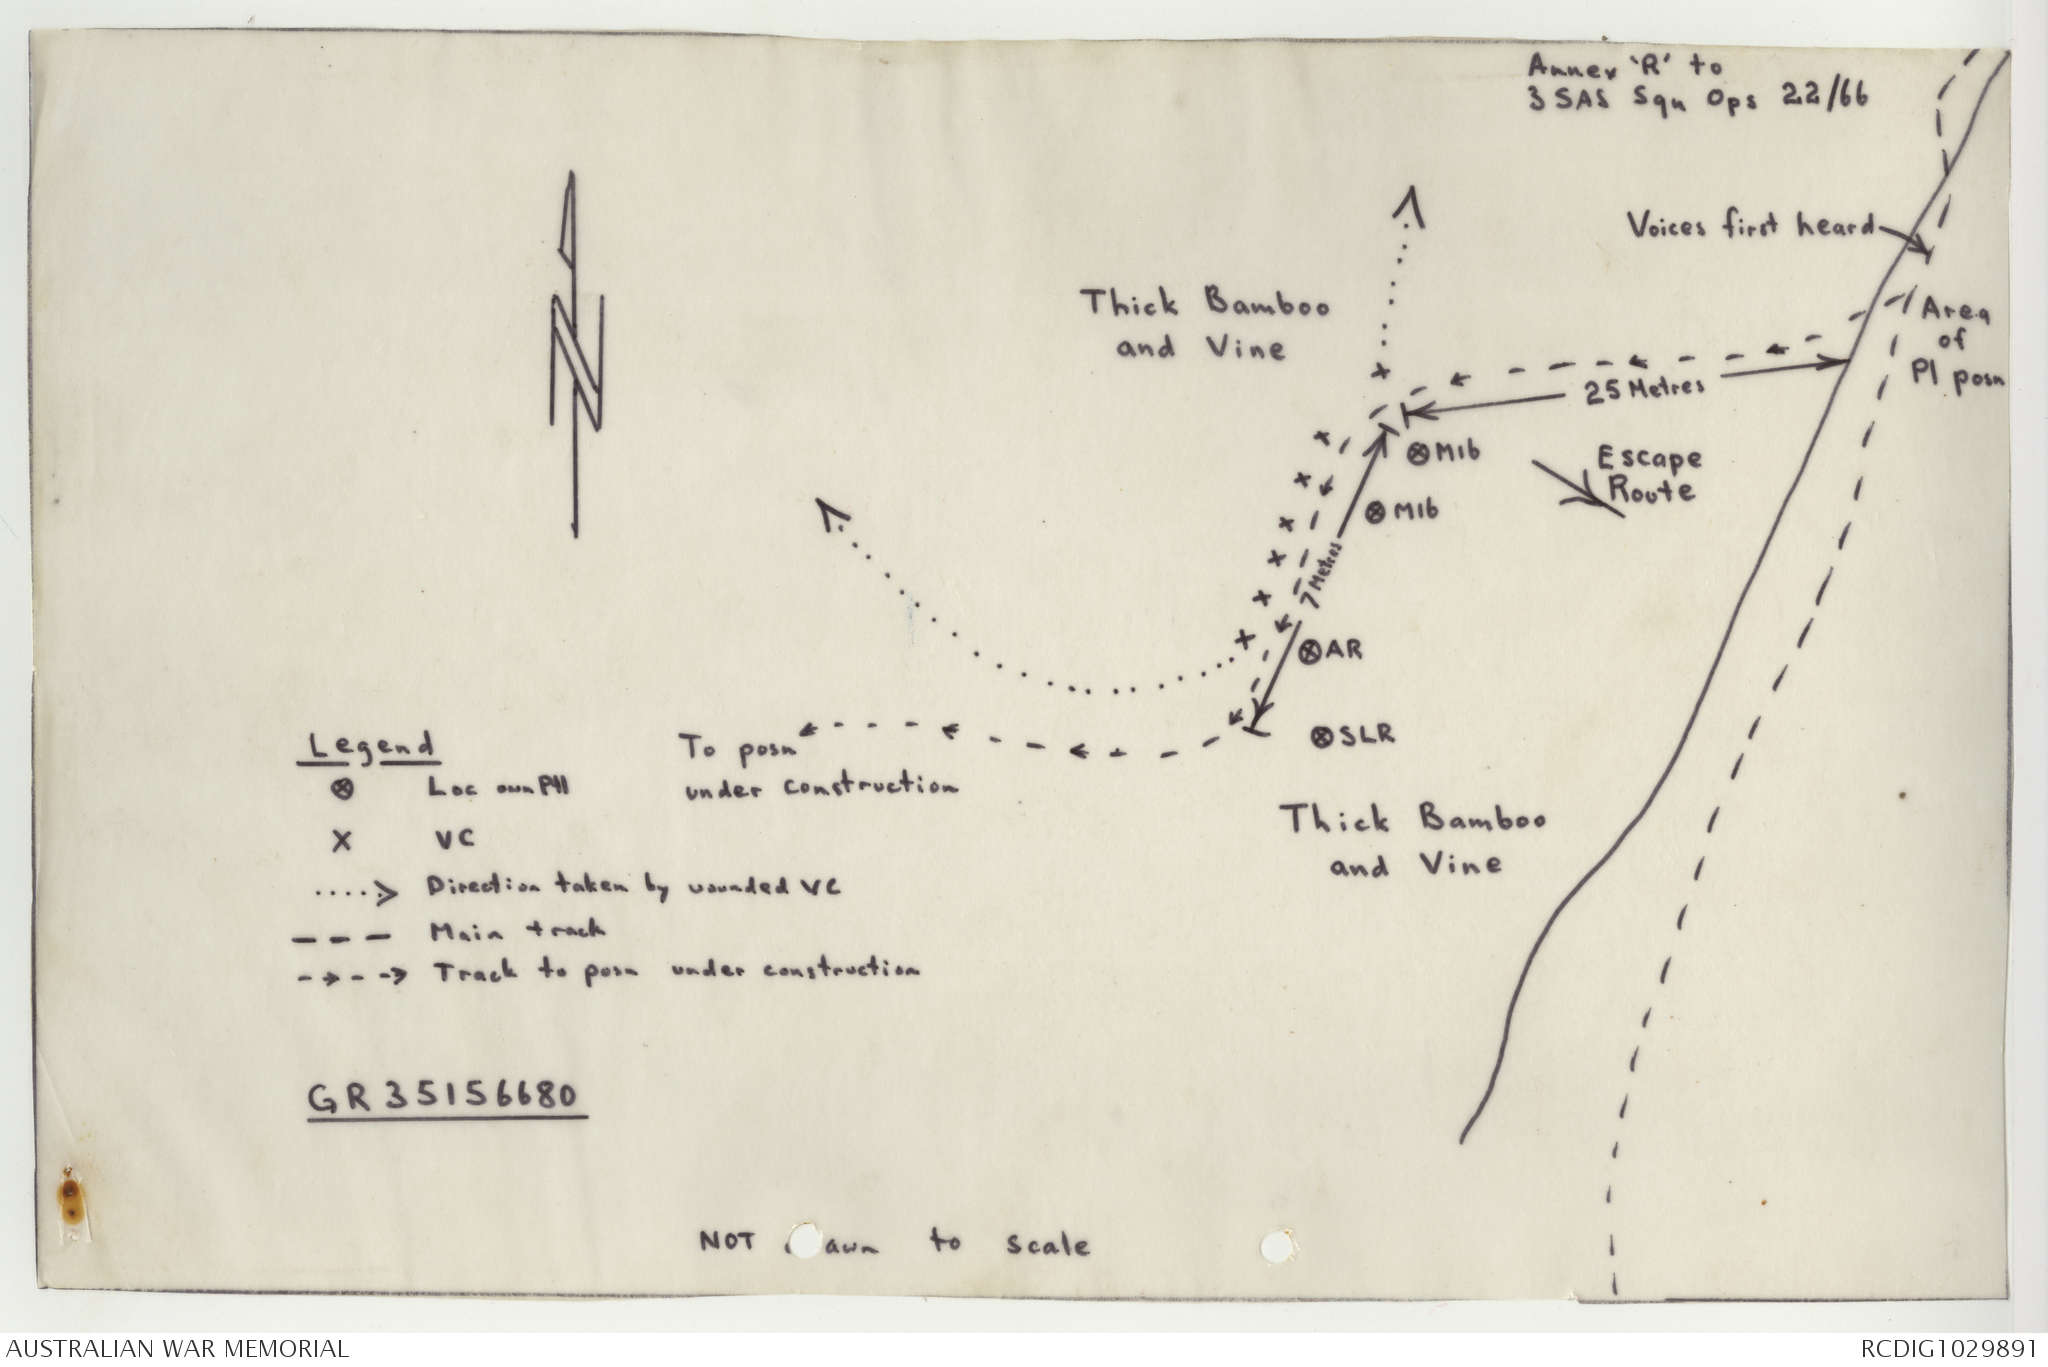 Annex 'R' to
3 SAS Sqn Ops 22/66
Voices first heard
Thick Bamboo
and Vine
Area
of
Pl posn
25 Metres
M16
Escape
Route
M16
7 Metres
AR
SLR
Legend
Loc own Ptl
VC
Direction taken by wounded VC
Main track
Track to posn under construction
To posn
under construction
Thick Bamboo
and Vine
GR 35156680
NOT awn to scale
AUSTRALIAN WAR MEMORIAL
RCDIG1029891